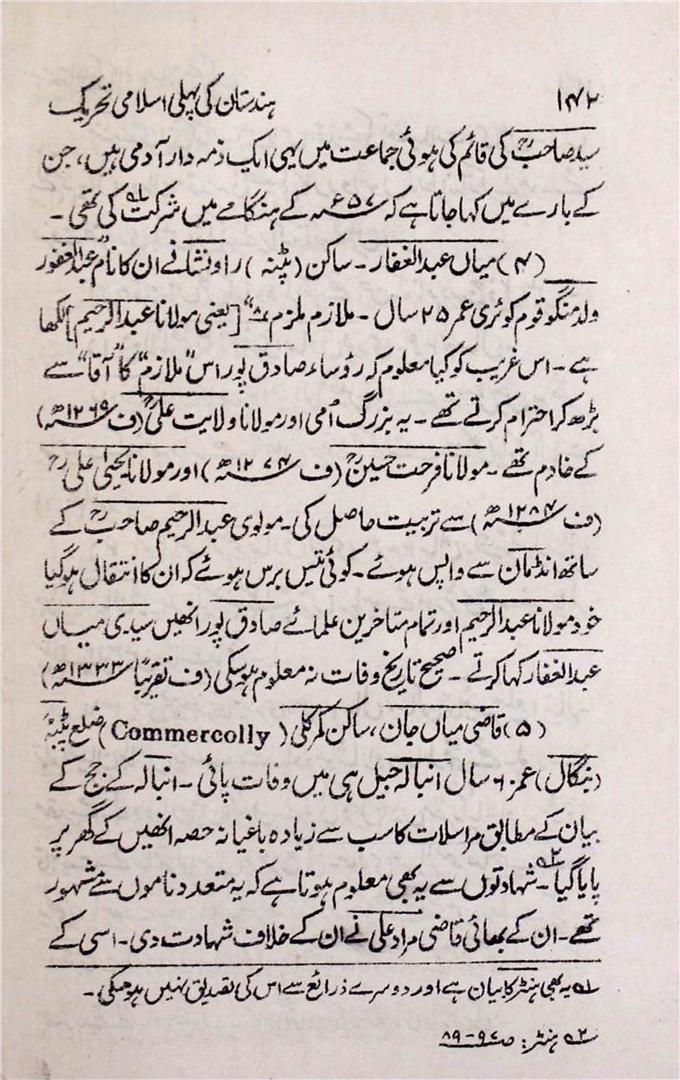 ۱۴۲ ہندستان کی پہلی اسلامی تحریک
سید صاحبؒ کی قائم کی ہوئی جماعت میں یہی ایک ذمہ دار آدمی ہیں، جن
کے بارے میں کہا جاتا ہے کہ ۵۷ء کے ہنگامے میں شرکت کی تھی۔؂۱
(۴) میاں عبدالغفار۔ ساکن (پٹنہ) راونشا نے ان کا نام "عبدالغفور
ولد منگو قوم کوئری عمر ۲۵ سال۔ ملازم ملزم ۸" [یعنی مولانا عبدالرحیم] لکھا
ہے۔ اس غریب کو کیا معلوم کہ رؤساء صادق پور اس "ملازم" کا "آقا" سے
بڑھ کر احترام کرتے تھے۔ یہ بزرگ اُمی اور مولانا ولایت علیؒ (ف ۱۲۶۹ھ)
کے خادم تھے۔ مولانا فرحت حسینؒ (ف ۱۲۷۴ھ) اور مولانا یحییٰ علیؒ
(ف ۱۲۸۴ھ) سے تربیت حاصل کی۔ مولوی عبدالرحیم صاحبؒ کے
ساتھ انڈمان سے واپس ہوئے۔ کوئی تیس برس ہوئے کہ ان کا انتقال ہو گیا
خود مولانا عبدالرحیم اور تمام متاخرین علمائے صادق پور انھیں سیدی میاں
عبدالغفار کہا کرتے۔ صحیح تاریخ وفات نہ معلوم ہو سکی (ف تقریبًا ۱۳۳۳ھ)
(۵) قاضی میاں جان، ساکن کمرکلی (Commercolly) ضلع پٹنہ
(بنگال) عمر ۶۰ سال انبالہ جیل ہی میں وفات پائی۔ انبالہ کے جج کے
بیان کے مطابق مراسلات کا سب سے زیادہ باغیانہ حصہ انھیں کے گھر پر
پایا گیا۔؂۲ شہادتوں سے یہ بھی معلوم ہوتا ہے کہ یہ متعدد ناموں سے مشہور
تھے۔ ان کے بھائی قاضی مراد علی نے ان کے خلاف شہادت دی۔ اسی کے
؂۱ یہ بھی ہنٹر کا بیان ہے اور دوسرے ذرائع سے اس کی تصدیق نہیں ہو سکی۔
؂۲ ہنٹر: ص ۹۷-۸۹